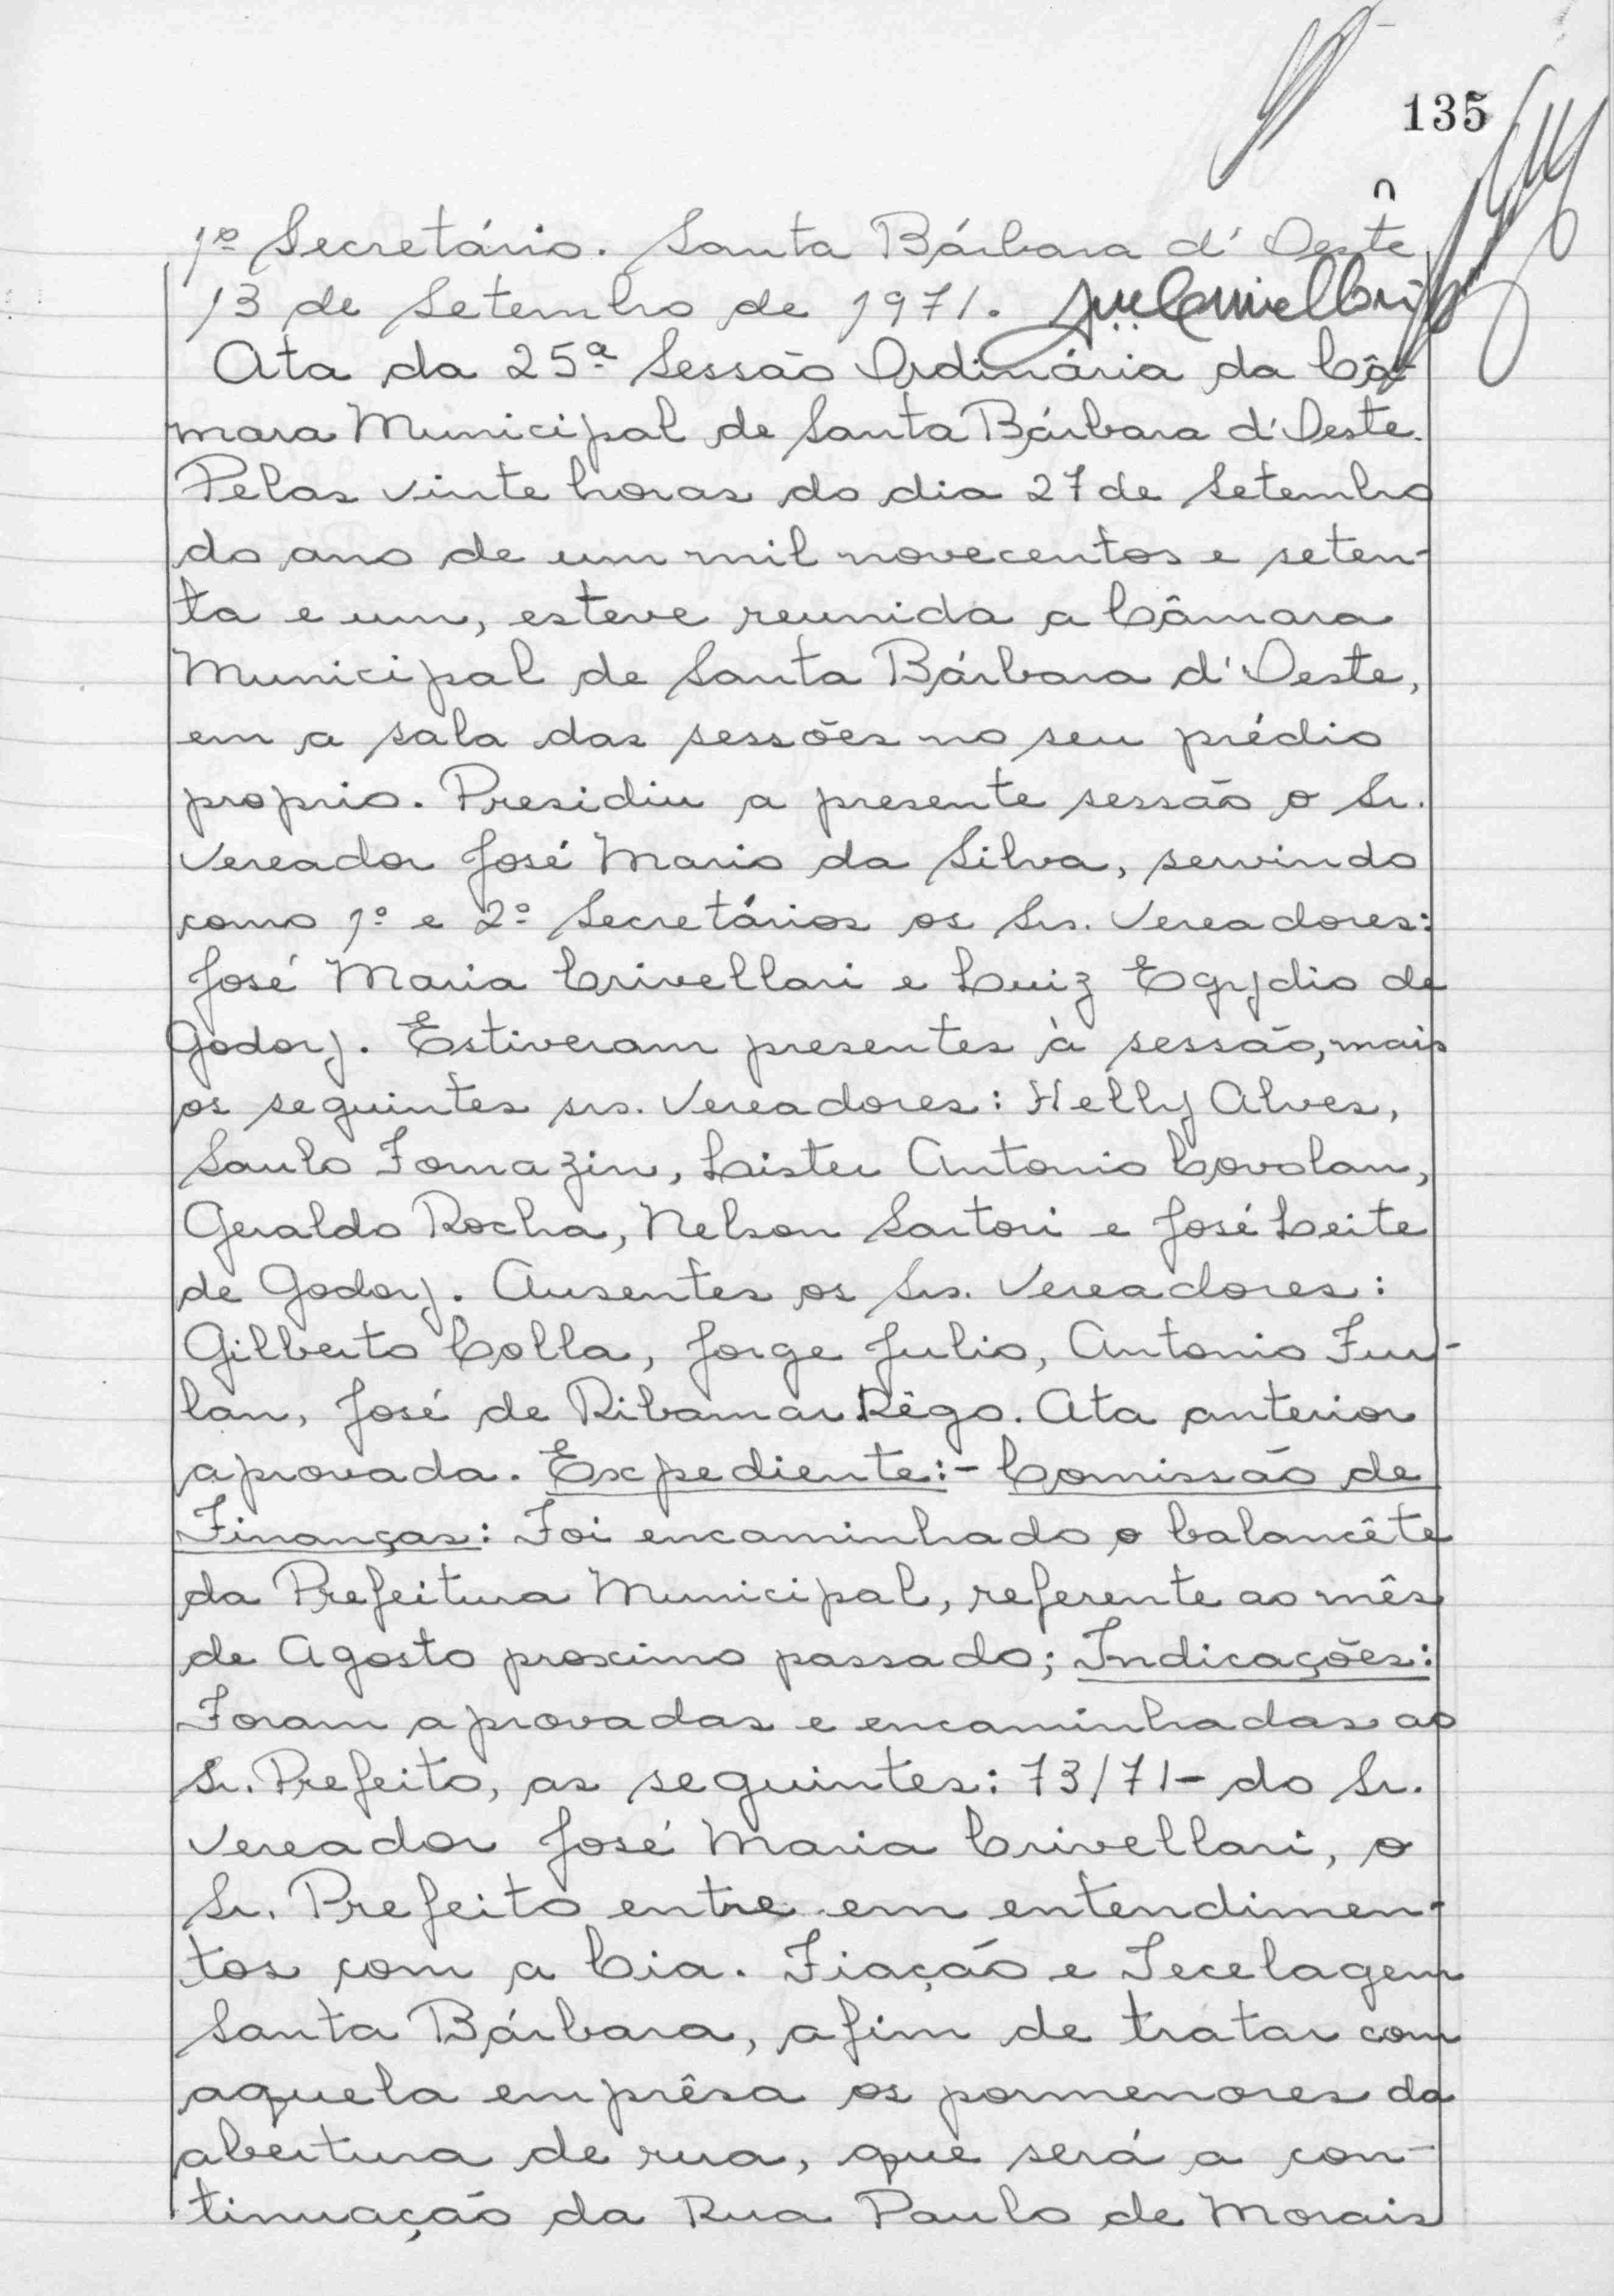 135
1º Secretário. Santa Bárbara d'Oeste
13 de Setembro de 1971.
Ata da 25ª Sessão Ordinária da Câ-
mara Municipal de Santa Bárbara d'Oeste.
Pelas vinte horas do dia 27 de Setembro
do ano de um mil novecentos e seten-
ta e um, esteve reunida a Câmara
Municipal de Santa Bárbara d'Oeste,
em a sala das sessões no seu prédio
proprio. Presidiu a presente sessão o Sr.
Vereador José Mario da Silva, servindo
como 1º e 2º Secretários os Srs. Vereadores:
José Maria Crivellari e Luiz Egydio de
Godoy. Estiveram presentes à sessão, mais
os seguintes srs. Vereadores: Helly Alves,
Saulo Fornazin, Lister Antonio Covolan,
Geraldo Rocha, Nelson Sartori e José Leite
de Godoy. Ausentes os Srs. Vereadores:
Gilberto Colla, Jorge Julio, Antonio Fur-
lan, José de Ribamar Rêgo. Ata anterior
aprovada. Expediente:- Comissão de
Finanças: Foi encaminhado o balancête
da Prefeitura Municipal, referente ao mês
de Agosto proximo passado; Indicações:
Foram aprovadas e encaminhadas ao
Sr. Prefeito, as seguintes: 73/71- do Sr.
Vereador José Maria Crivellari, o
Sr. Prefeito entre em entendimen-
tos com a Cia. Fiação e Tecelagem
Santa Bárbara, afim de tratar com
aquela emprêsa os pormenores da
abertura de rua, que será a con-
tinuação da Rua Paulo de Morais